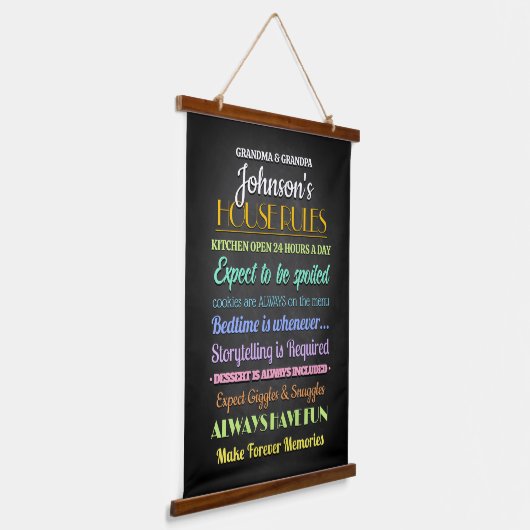 GRANDMA & GRANDPA
Johnson's
HOUSE RULES
KITCHEN OPEN 24 HOURS A DAY
Expect to be spoiled
cookies are ALWAYS on the menu
Bedtime is whenever...
Storytelling is Required
• DESSERT IS ALWAYS INCLUDED •
Expect Giggles & Snuggles
ALWAYS HAVE FUN
Make Forever Memories